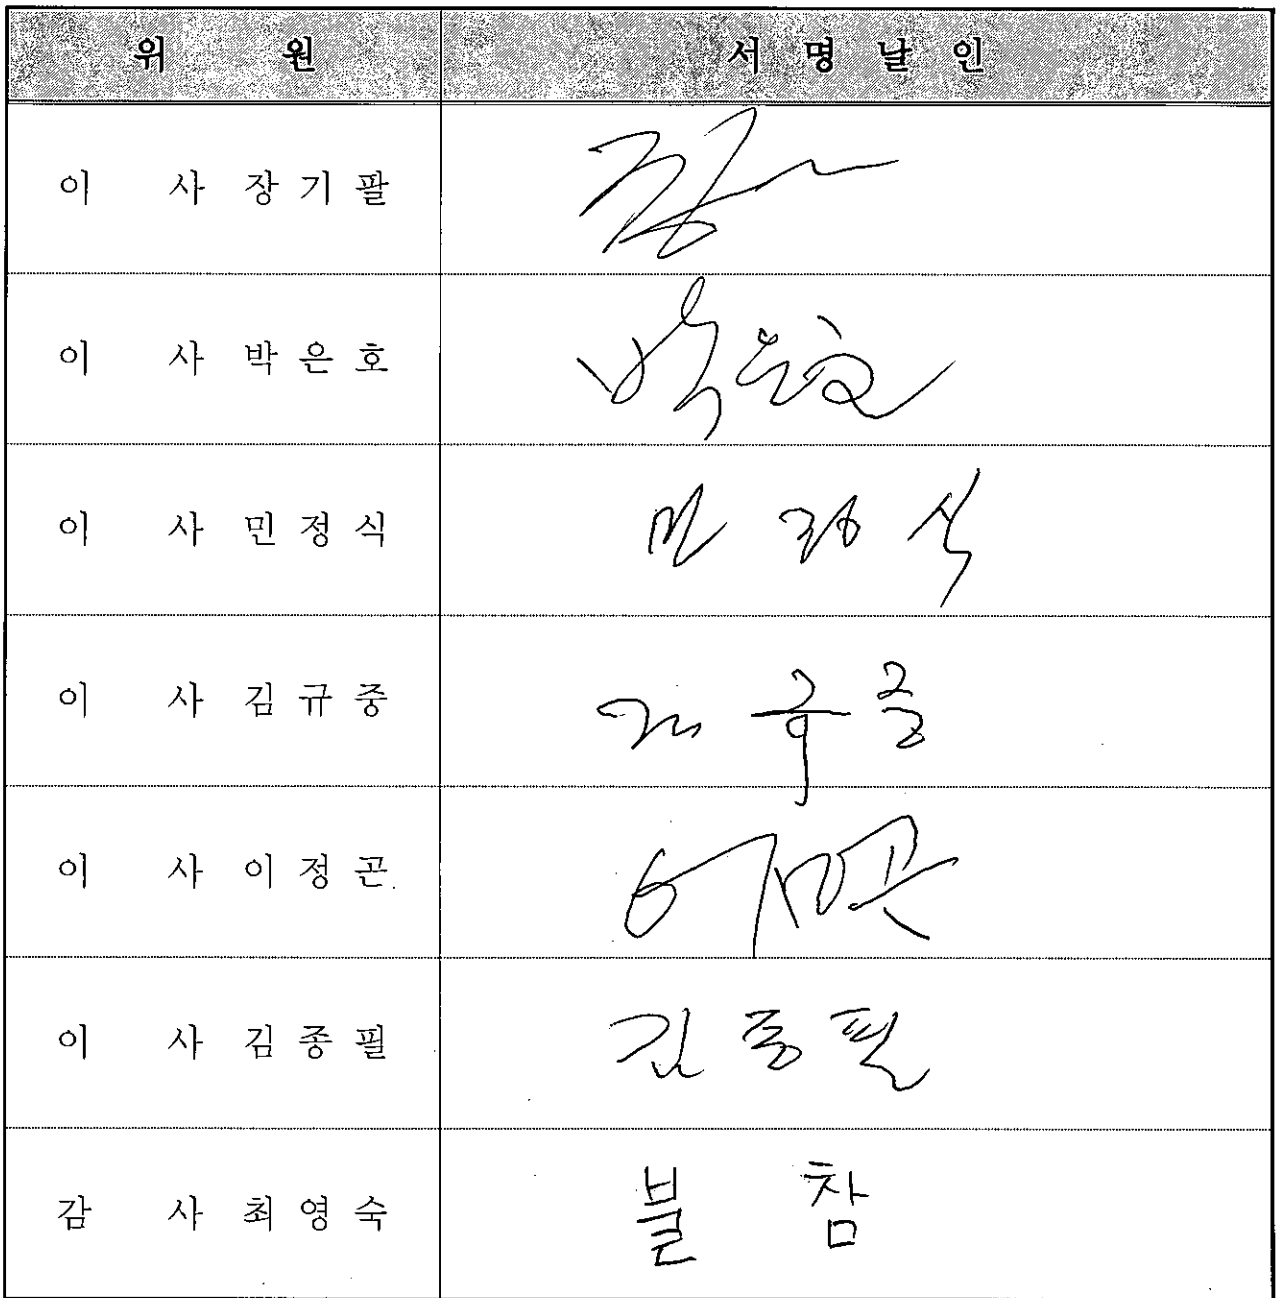 위 원 서 명 날 인
이 사 장 기 팔
이 사 박 은 호 박은호
이 사 민 정 식 민 정 식
이 사 김 규 중 김 규 중
이 사 이 정 곤 이정곤
이 사 김 종 필 김 종 필
감 사 최 영 숙 불 참